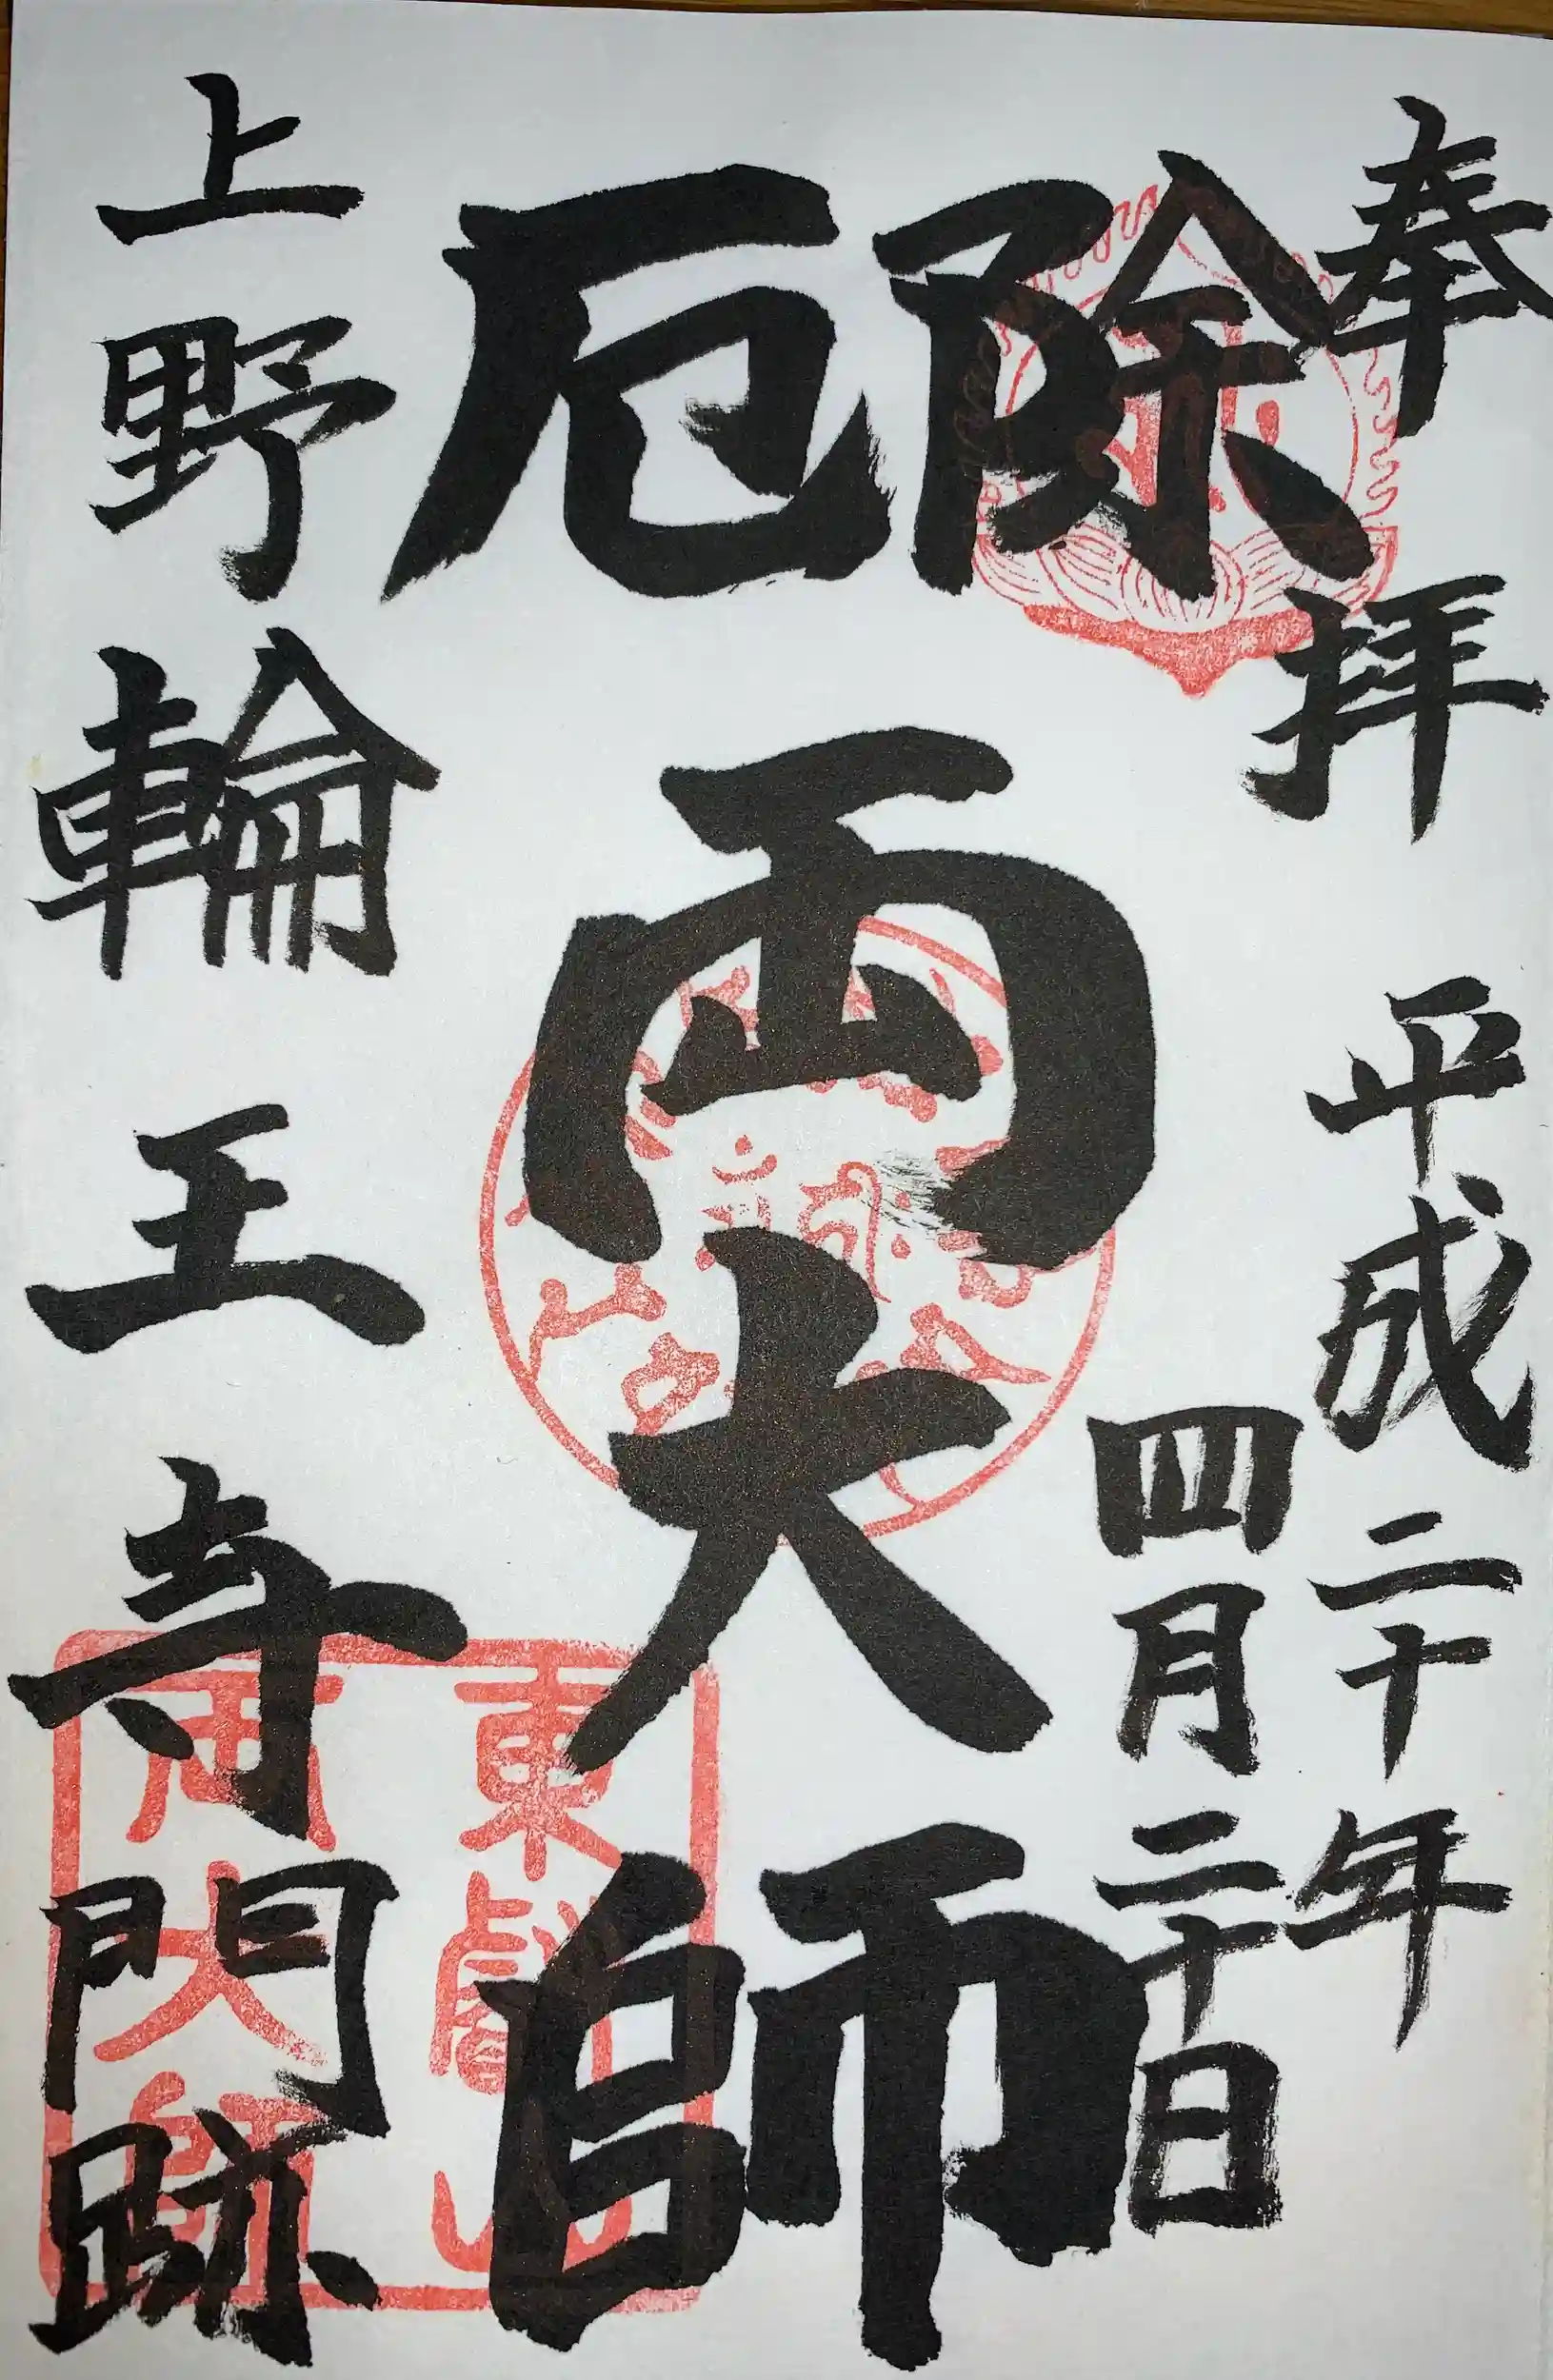 奉拝
平成二十年
四月二十日
除厄
両大師
上野輪王寺門跡
東叡山
両大師